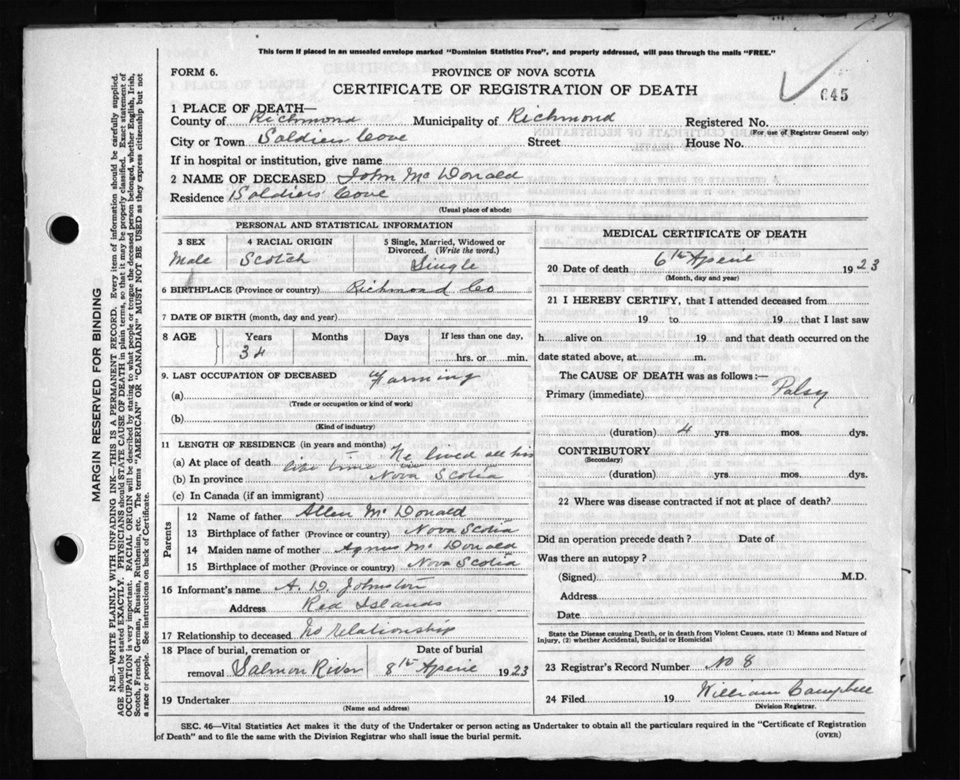 This form if placed in an unsealed envelope marked "Dominion Statistics Free", and properly addressed, will pass through the mails "FREE."
FORM 6.
PROVINCE OF NOVA SCOTIA
CERTIFICATE OF REGISTRATION OF DEATH
645
1 PLACE OF DEATH—
County of Richmond Municipality of Richmond Registered No.
(For use of Registrar General only)
City or Town Soldiers Cove Street House No.
If in hospital or institution, give name
2 NAME OF DECEASED John McDonald
Residence Soldiers Cove
(Usual place of abode)
PERSONAL AND STATISTICAL INFORMATION
3 SEX 4 RACIAL ORIGIN 5 Single, Married, Widowed or Divorced. (Write the word.)
Male Scotch Single
6 BIRTHPLACE (Province or country) Richmond Co
7 DATE OF BIRTH (month, day and year)
8 AGE Years Months Days If less than one day,
34 hrs. or min.
9. LAST OCCUPATION OF DECEASED Farming
(a)
(Trade or occupation or kind of work)
(b)
(Kind of industry)
11 LENGTH OF RESIDENCE (in years and months)
(a) At place of death He lived all his life time
(b) In province Nova Scotia
(c) In Canada (if an immigrant)
Parents
12 Name of father Allen McDonald
13 Birthplace of father (Province or country) Nova Scotia
14 Maiden name of mother Agnus McDonald
15 Birthplace of mother (Province or country) Nova Scotia
16 Informant's name A. D. Johnston
Address Red Islands
17 Relationship to deceased No relationship
18 Place of burial, cremation or removal Date of burial
Salmon River 8th Aperil 1923
19 Undertaker
(Name and address)
MEDICAL CERTIFICATE OF DEATH
20 Date of death 6th Aperil 1923
(Month, day and year)
21 I HEREBY CERTIFY, that I attended deceased from
19 to 19 that I last saw
h alive on 19 and that death occurred on the
date stated above, at m.
The CAUSE OF DEATH was as follows:—
Primary (immediate) Palsy
(duration) 4 yrs. mos. dys.
CONTRIBUTORY
(Secondary)
(duration) yrs. mos. dys.
22 Where was disease contracted if not at place of death?
Did an operation precede death? Date of
Was there an autopsy?
(Signed) M.D.
Address
Date
State the Disease causing Death, or in death from Violent Causes, state (1) Means and Nature of
Injury, (2) whether Accidental, Suicidal or Homicidal
23 Registrar's Record Number No 8
24 Filed 19 William Campbell
Division Registrar.
SEC. 46—Vital Statistics Act makes it the duty of the Undertaker or person acting as Undertaker to obtain all the particulars required in the "Certificate of Registration
of Death" and to file the same with the Division Registrar who shall issue the burial permit.
(OVER)
MARGIN RESERVED FOR BINDING
N.B.—WRITE PLAINLY WITH UNFADING INK—THIS IS A PERMANENT RECORD. Every item of information should be carefully supplied.
AGE should be stated EXACTLY. PHYSICIANS should STATE CAUSE OF DEATH in plain terms, so that it may be properly classified. Exact statement of
OCCUPATION is very important. RACIAL ORIGIN will be described by stating to what people or tongue the deceased person belonged, whether English, Irish,
Scotch, French, German, Russian, Ruthenian, etc. The terms "AMERICAN" OR "CANADIAN" MUST NOT BE USED as they express citizenship but not
a race or people. See instructions on back of Certificate.